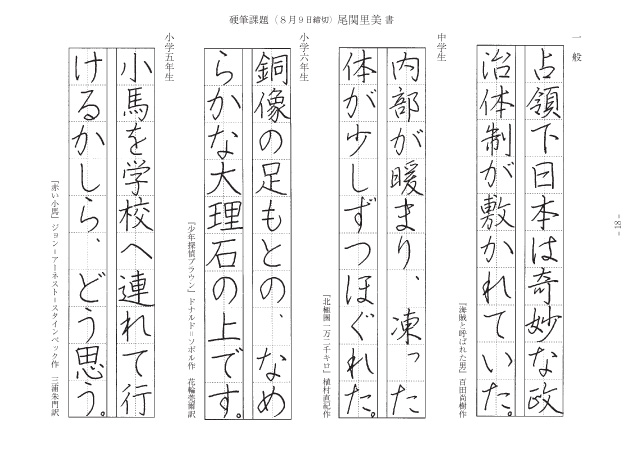 硬筆課題（８月９日締切）尾関里美 書
一般
占領下日本は奇妙な政
治体制が敷かれていた。
『海賊と呼ばれた男』百田尚樹作
中学生
内部が暖まり、凍った
体が少しずつほぐれた。
『北極圏一万二千キロ』植村直紀作
小学六年生
銅像の足もとの、なめ
らかな大理石の上です。
『少年探偵ブラウン』ドナルド＝ソボル作 花輪莞爾訳
小学五年生
小馬を学校へ連れて行
けるかしら、どう思う。
『赤い小馬』ジョン＝アーネスト＝スタインベック作 三浦朱門訳
- 18 -